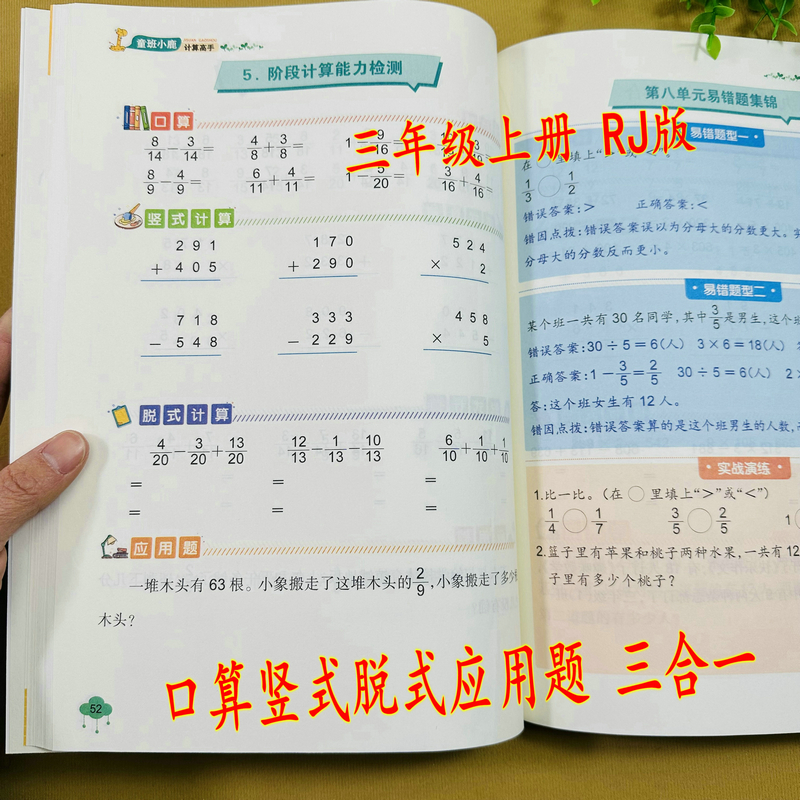 童班小鹿 计算高手
5. 阶段计算能力检测
口算
8/14－3/14＝ 4/8＋3/8＝
8/9－4/9＝ 6/11＋4/11＝ 1－5/20＝ 3/16＋4/16＝
竖式计算
291 170 524
＋405 ＋290 ×2
718 333 458
－548 －229 ×5
脱式计算
4/20－3/20＋13/20 12/13－1/13－10/13 6/10＋1/10＋1/10
＝ ＝ ＝
＝ ＝ ＝
应用题
一堆木头有63根。小象搬走了这堆木头的2/9,小象搬走了多少
木头?
52
第八单元易错题集锦
易错题型一
在○里填上“
1/3○1/2
错误答案:> 正确答案:<
错因点拨:错误答案误以为分母大的分数更大。
分母大的分数反而更小。
易错题型二
某个班一共有30名同学,其中3/5是男生,这个班
错误答案:30÷5=6(人) 3×6=18(人)
正确答案:1－3/5＝2/5 30÷5=6(人)
答:这个班女生有12人。
错因点拨:错误答案算的是这个班男生的人数,
实战演练
1.比一比。(在○里填上“>”或“<”)
1/4○1/7 3/5○2/5
2.篮子里有苹果和桃子两种水果,一共有12
子里有多少个桃子?
三年级上册 RJ版
口算竖式脱式应用题 三合一